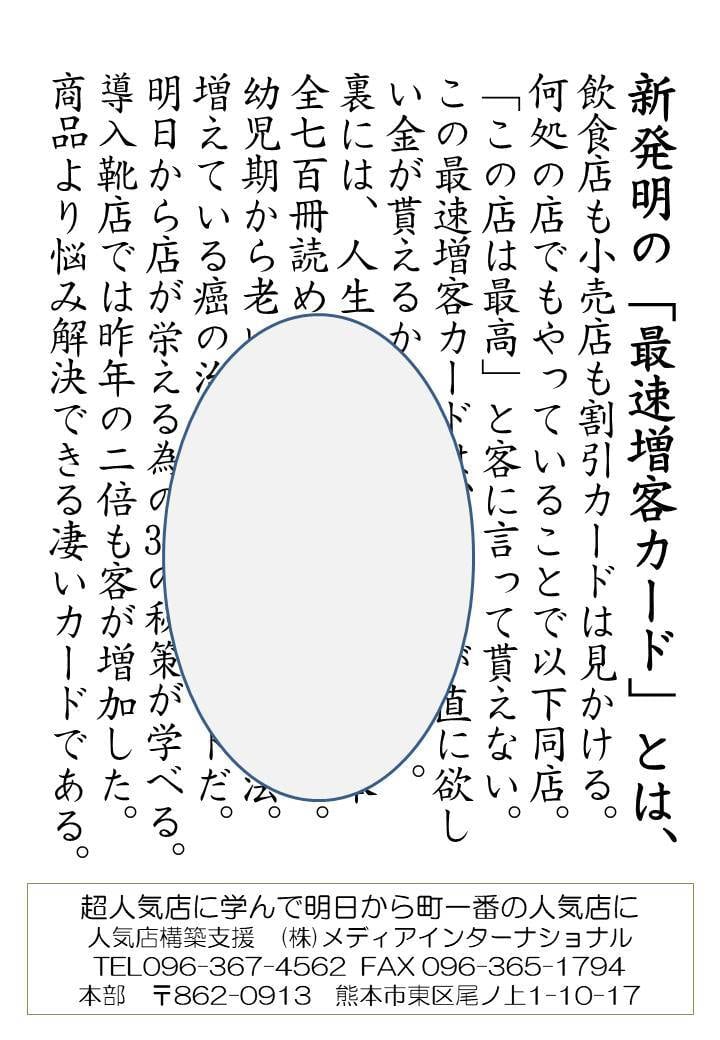 新発明の「最速増客カード」とは、
飲食店も小売店も割引カードは見かける。
何処の店でもやっていることで以下同店。
「この店は最高」と客に言って貰えない。
この最速増客カードは、が直に欲し
い金が貰えるか。
裏には、人生
全七百冊読め。
幼児期から老い法。
増えている癌の治ドだ。
明日から店が栄える為の3の秘策が学べる。
導入靴店では昨年の二倍も客が増加した。
商品より悩み解決できる凄いカードである。
超人気店に学んで明日から町一番の人気店に
人気店構築支援 (株)メディアインターナショナル
TEL096-367-4562 FAX 096-365-1794
本部 〒862-0913 熊本市東区尾ノ上1-10-17